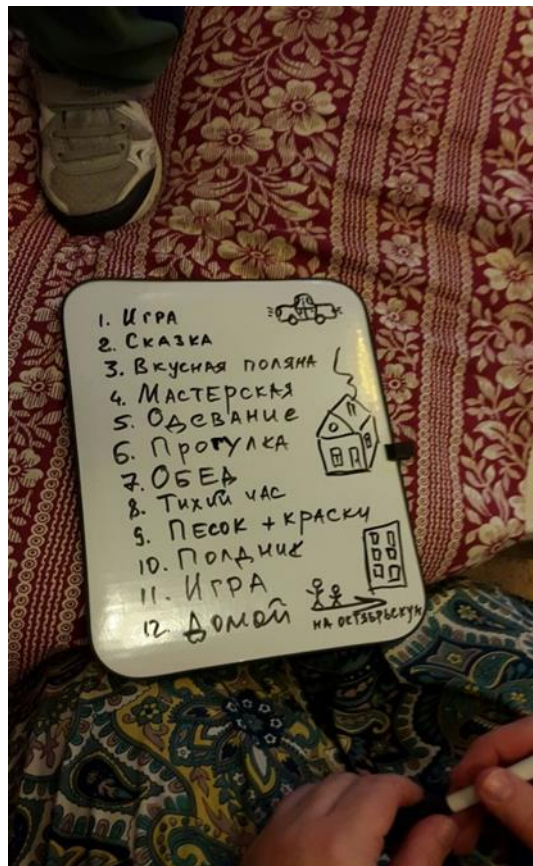 1. ИГРА
2. СКАЗКА
3. ВКУСНАЯ ПОЛЯНА
4. МАСТЕРСКАЯ
5. ОДЕВАНИЕ
6. ПРОГУЛКА
7. ОБЕД
8. ТИХИЙ ЧАС
9. ПЕСОК + КРАСКИ
10. ПОЛДНИК
11. ИГРА
12. ДОМОЙ
НА ОКТЯБРЬСКУЮ